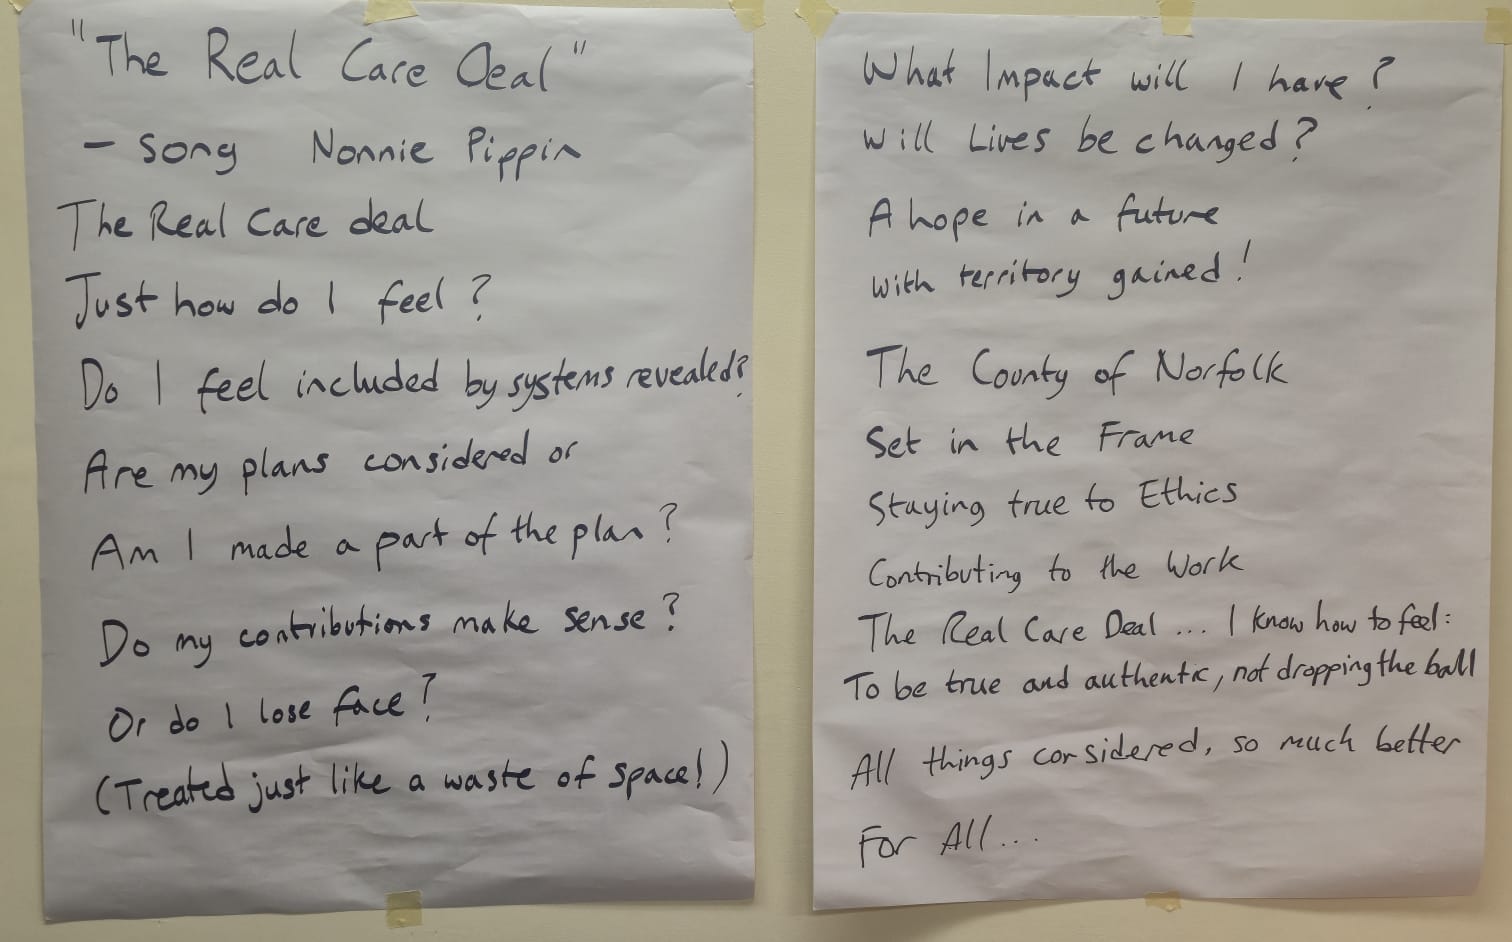 "The Real Care Deal"
- Song Nonnie Pippin
The Real Care deal
Just how do I feel?
Do I feel included by systems revealed?
Are my plans considered or
Am I made a part of the plan?
Do my contributions make sense?
Or do I lose face?
(Treated just like a waste of space!)
What Impact will I have?
Will Lives be changed?
A hope in a future
with territory gained!
The County of Norfolk
Set in the Frame
Staying true to Ethics
Contributing to the Work
The Real Care Deal ... I know how to feel:
To be true and authentic, not dropping the ball
All things considered, so much better
For All...